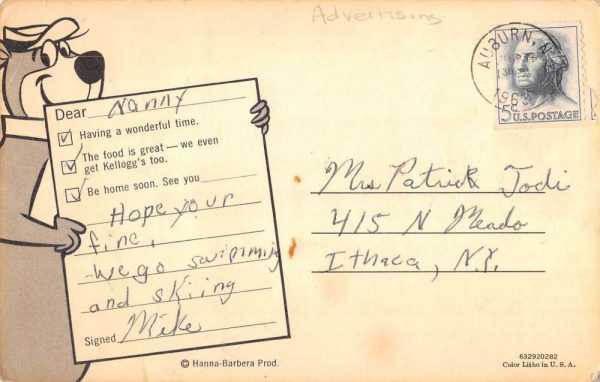 Advertising
AUBURN, N.Y.
1963
5¢ U.S. POSTAGE
Dear Nanny
Having a wonderful time.
The food is great — we even
get Kellogg's too.
Be home soon. See you
Hope your
fine,
we go swimming
and skiing
Signed Mike
Mrs Patrick Jodi
415 N Meado
Ithaca, N.Y.
© Hanna-Barbera Prod.
632920282
Color Litho in U. S. A.